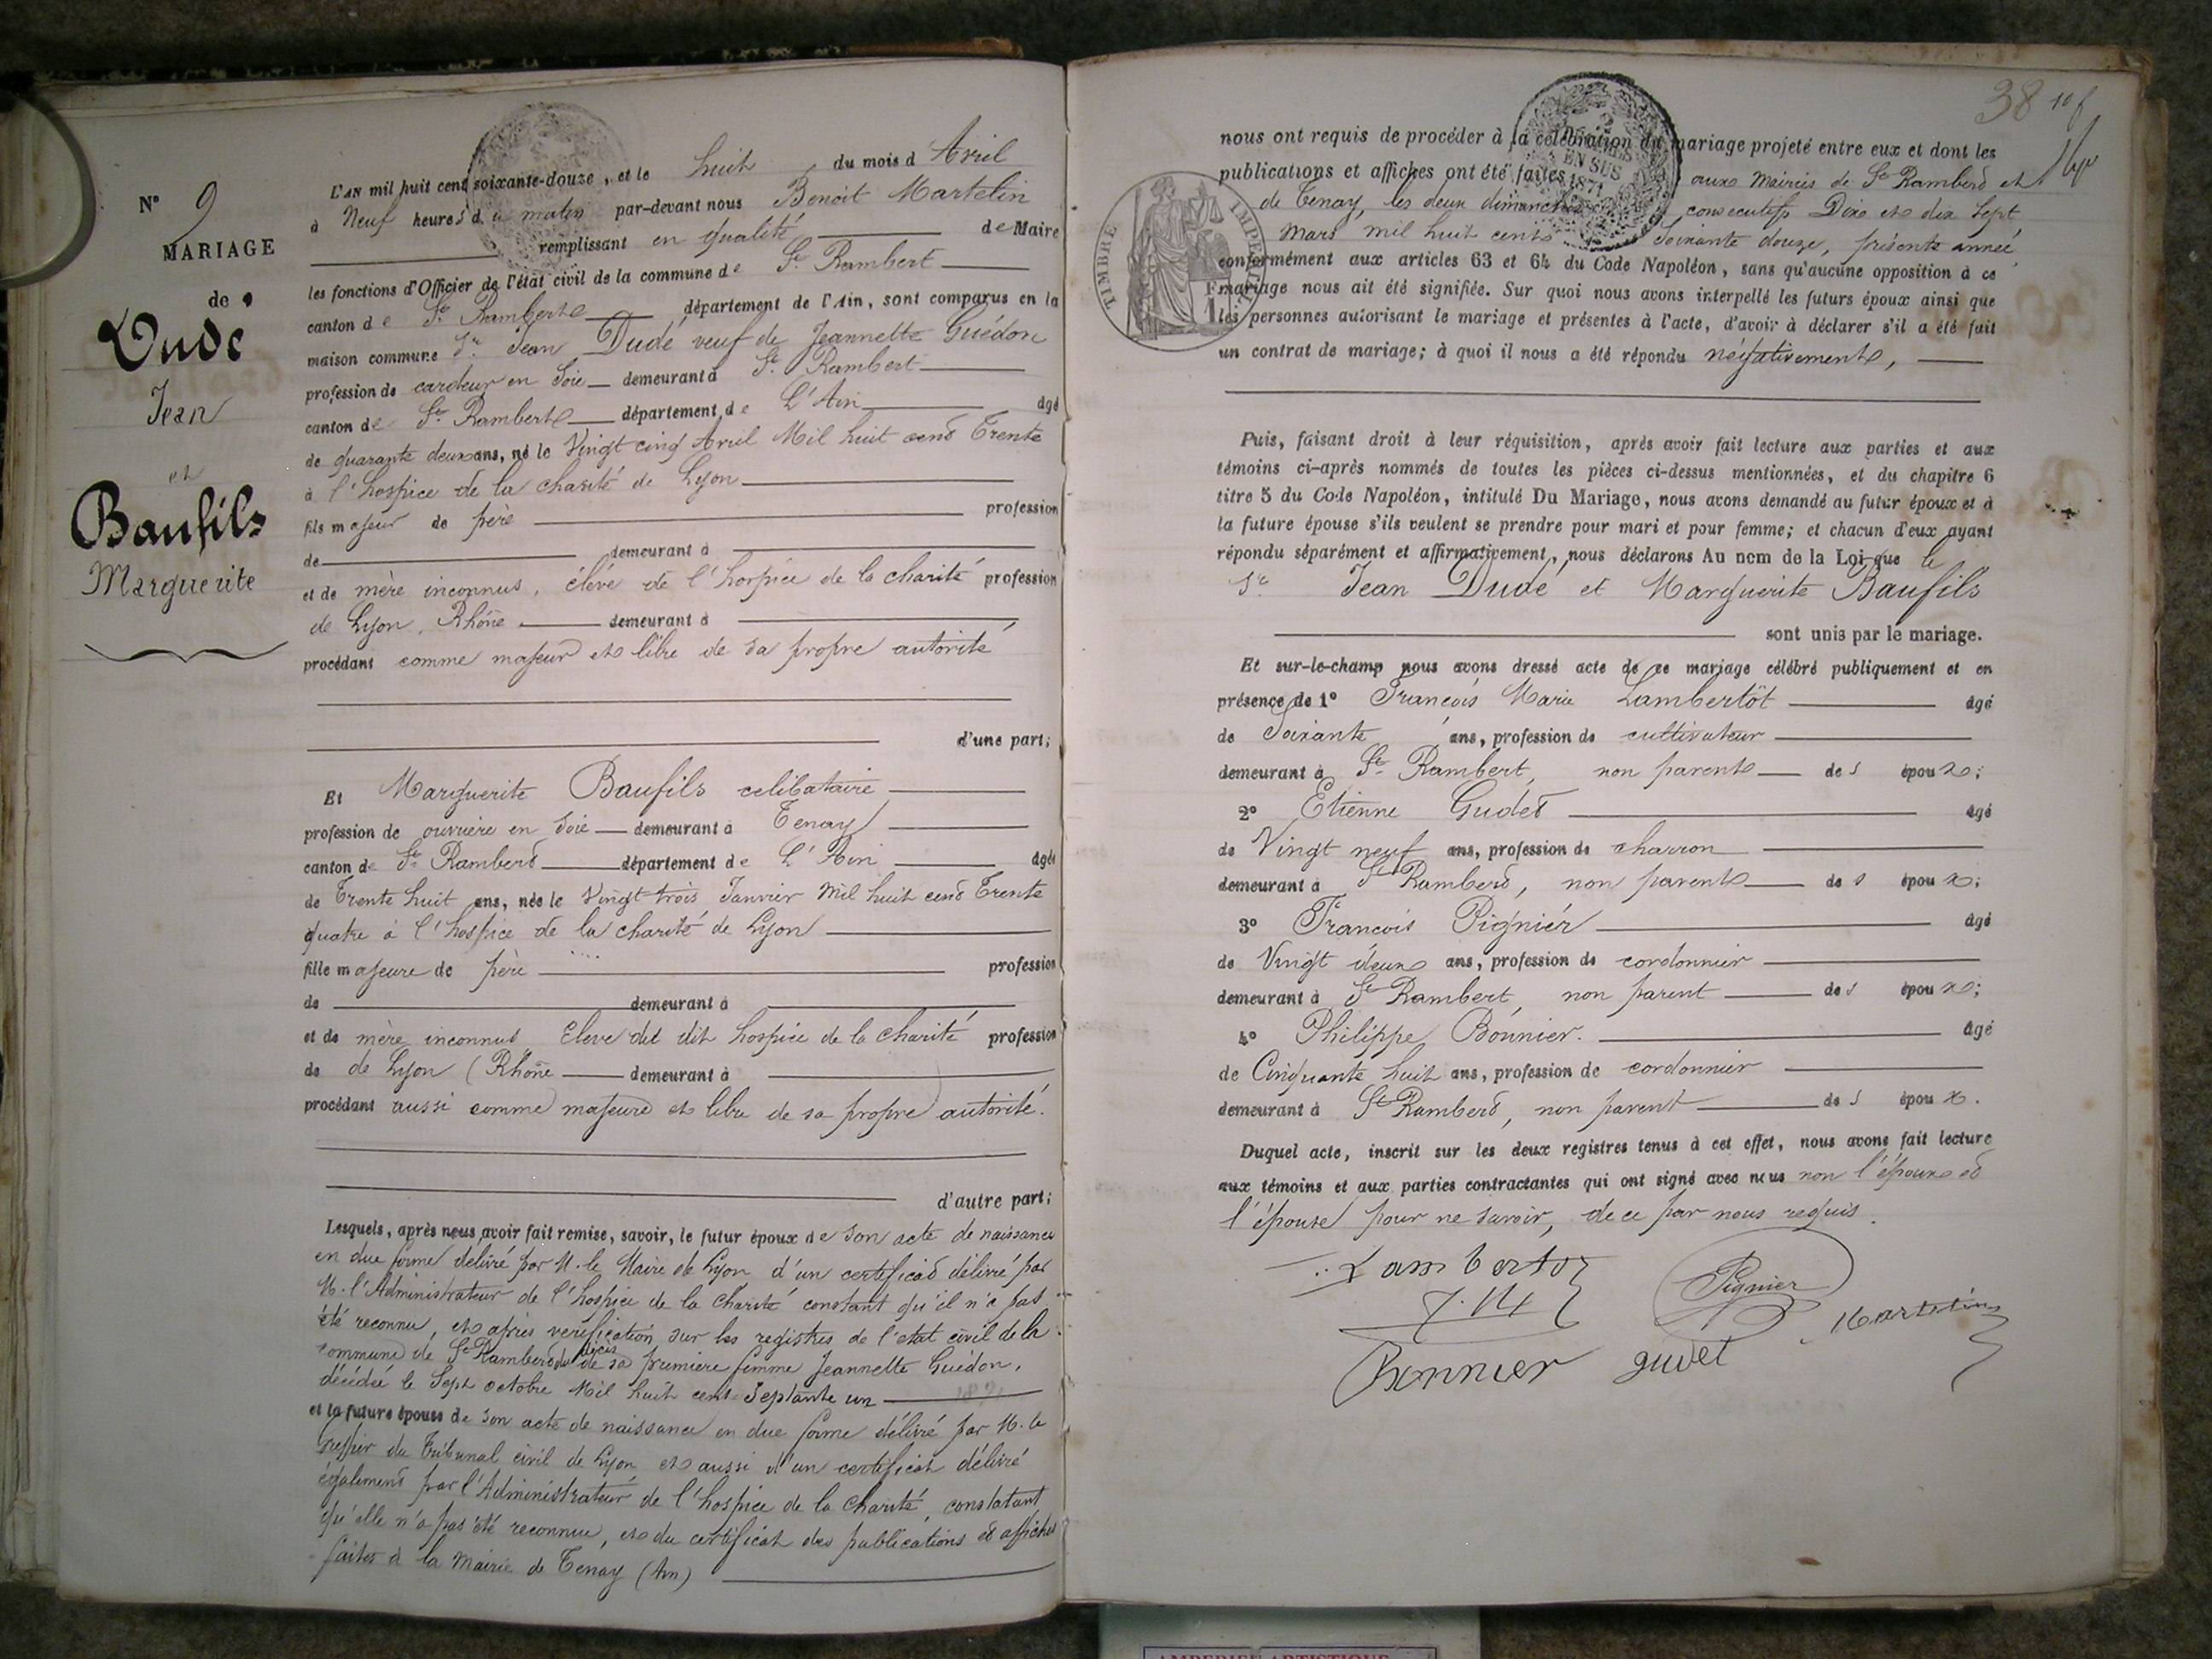 N° 9
MARIAGE
de
Dudé
Jean
et
Baufils
Marguerite
L'AN mil huit cent soixante-douze, et le huit du mois d'Avril
à Neuf heures du matin par-devant nous Benoit Martelin
remplissant en qualité de Maire
les fonctions d'Officier de l'état civil de la commune de St Rambert
canton de St Rambert département de l'Ain, sont comparus en la
maison commune Sr Jean Dudé veuf de Jeannette Guédon
profession de cardeur en soie demeurant à St Rambert
canton de St Rambert département de L'Ain âgé
de quarante deux ans, né le Vingt cinq Avril Mil huit cent Trente
à l'hospice de la charité de Lyon
fils majeur de père profession
de demeurant à
et de mère inconnus, élève de l'hospice de la charité profession
de Lyon, Rhône demeurant à
procédant comme majeur et libre de sa propre autorité
d'une part;
Et Marguerite Baufils celibataire
profession de ouvrière en soie demeurant à Tenay
canton de St Rambert département de L'Ain âgée
de Trente huit ans, née le Vingt trois Janvier Mil huit cent Trente
quatre à l'hospice de la charité de Lyon
fille majeure de père profession
de demeurant à
et de mère inconnus Eleve du dit hospice de la charité profession
de de Lyon (Rhône demeurant à
procédant aussi comme majeure et libre de sa propre autorité.
d'autre part;
Lesquels, après nous avoir fait remise, savoir, le futur époux de son acte de naissance
en due forme délivré par M. le Maire de Lyon d'un certificat délivré par
M. l'Administrateur de l'hospice de la Charité constant qu'il n'a pas
été reconnu, et après verification sur les registres de l'etat civil de la
commune de St Rambert du décès de sa premiere femme Jeannette Guédon,
décédée le Sept octobre Mil huit cent Septante un
et la future épouse de son acte de naissance en due forme délivré par M. le
Greffier du Tribunal civil de Lyon et aussi d'un certificat délivré
également par l'Administrateur de l'hospice de la Charité, constatant
qu'elle n'a pas été reconnue, et du certificat des publications et affiches
faites à la Mairie de Tenay (Ain)
38
nous ont requis de procéder à la célébration du mariage projeté entre eux et dont les
publications et affiches ont été faites aux Mairies de St Rambert et
de Tenay, les deux dimanches consecutifs Dix et dix Sept
Mars mil huit cent Soixante douze, présente année,
conformément aux articles 63 et 64 du Code Napoléon, sans qu'aucune opposition à ce
mariage nous ait été signifiée. Sur quoi nous avons interpellé les futurs époux ainsi que
les personnes autorisant le mariage et présentes à l'acte, d'avoir à déclarer s'il a été fait
un contrat de mariage; à quoi il nous a été répondu négativement,
TIMBRE IMPERIAL
EN SUS
1871
Puis, faisant droit à leur réquisition, après avoir fait lecture aux parties et aux
témoins ci-après nommés de toutes les pièces ci-dessus mentionnées, et du chapitre 6
titre 5 du Code Napoléon, intitulé Du Mariage, nous avons demandé au futur époux et à
la future épouse s'ils veulent se prendre pour mari et pour femme; et chacun d'eux ayant
répondu séparément et affirmativement, nous déclarons Au nom de la Loi que le
Sr Jean Dudé et Marguerite Baufils
sont unis par le mariage.
Et sur-le-champ nous avons dressé acte de ce mariage célébré publiquement et en
présence de 1° François Marie Lambertôt âgé
de Soixante ans, profession de cultivateur
demeurant à St Rambert, non parent des époux;
2° Etienne Gudet âgé
de Vingt neuf ans, profession de charron
demeurant à St Rambert, non parent des époux;
3° Francois Pignier âgé
de Vingt deux ans, profession de cordonnier
demeurant à St Rambert, non parent des époux;
4° Philippe Bonnier. âgé
de Cinquante huit ans, profession de cordonnier
demeurant à St Rambert, non parent des époux.
Duquel acte, inscrit sur les deux registres tenus à cet effet, nous avons fait lecture
aux témoins et aux parties contractantes qui ont signé avec nous non l'époux et
l'épouse pour ne savoir, de ce par nous requis.
Lambertoz
Pignier
Martelin
Bonnier
gudet